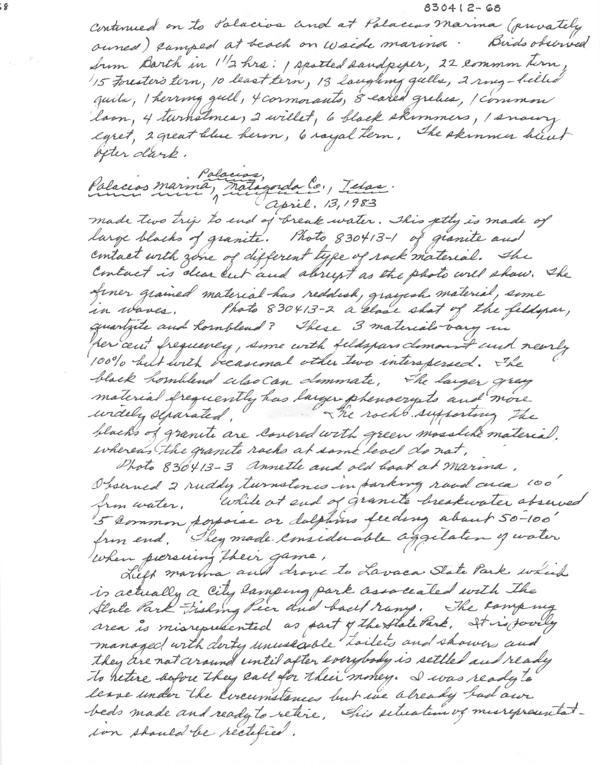 830412-68
continued on to Palacios and at Palacios Marina (privately
owned) camped at beach on W side marina. Birds observed
from Barth in 1 1/2 hrs: 1 spotted sandpiper, 22 common tern,
15 Forester's tern, 10 least tern, 18 laughing gulls, 2 ring-billed
gulls, 1 herring gull, 4 cormorants, 8 eared grebes, 1 common
loon, 4 turnstones, 2 willet, 6 black skimmers, 1 snowy
egret, 2 great blue heron, 6 royal tern. The skimmer
after dark.
Palacios Marina, Palacios, Matagorda Co., Texas.
April. 13, 1983
made two trip to end of break water. This jetty is made of
large blocks of granite. Photo 830413-1 of granite and
contact with zone of different type of rock material. The
contact is clear cut and abrupt as the photo will show. The
finer grained material has reddish, grayish material, some
in waves. Photo 830413-2 a close shot of the feldspar,
quartzite and hornblend? These 3 materials vary in
per cent frequency, some with feldspars dominant and nearly
100% but with occasional other two interspersed. The
black hornblend also can dominate. The larger gray
material frequently has larger phenocrypts and more
widely separated. The rocks supporting the
blocks of granite are covered with green mosslike material,
whereas the granite rocks at same level do not.
Photo 830413-3 Annette and old boat at Marina.
Observed 2 ruddy turnstones in parking road area 100'
frm water. While at end of granite breakwater observed
5 common porpoise or dolphins feeding about 50-100'
frm end. They made considerable aggitation of water
when pursuing their game.
Left marina and drove to Lavaca State Park which
is actually a City Camping park associated with the
State Park Fishing Pier and boat ramp. The camping
area is misrepresented as part of the State Park. It is poorly
managed with dirty unuseable toilets and showers and
they are not around until after everybody is settled and ready
to retire before they call for their money. I was ready to
leave under the circumstances but we already had our
beds made and ready to retire. This situation of misrepresentat-
ion should be rectified.